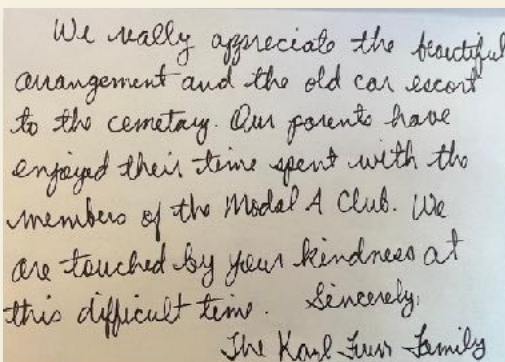 We really appreciate the beautiful
arrangement and the old car escort
to the cemetary. Our parents have
enjoyed their time spent with the
members of the Modal A Club. We
are touched by your kindness at
this difficult time. Sincerely,
The Family